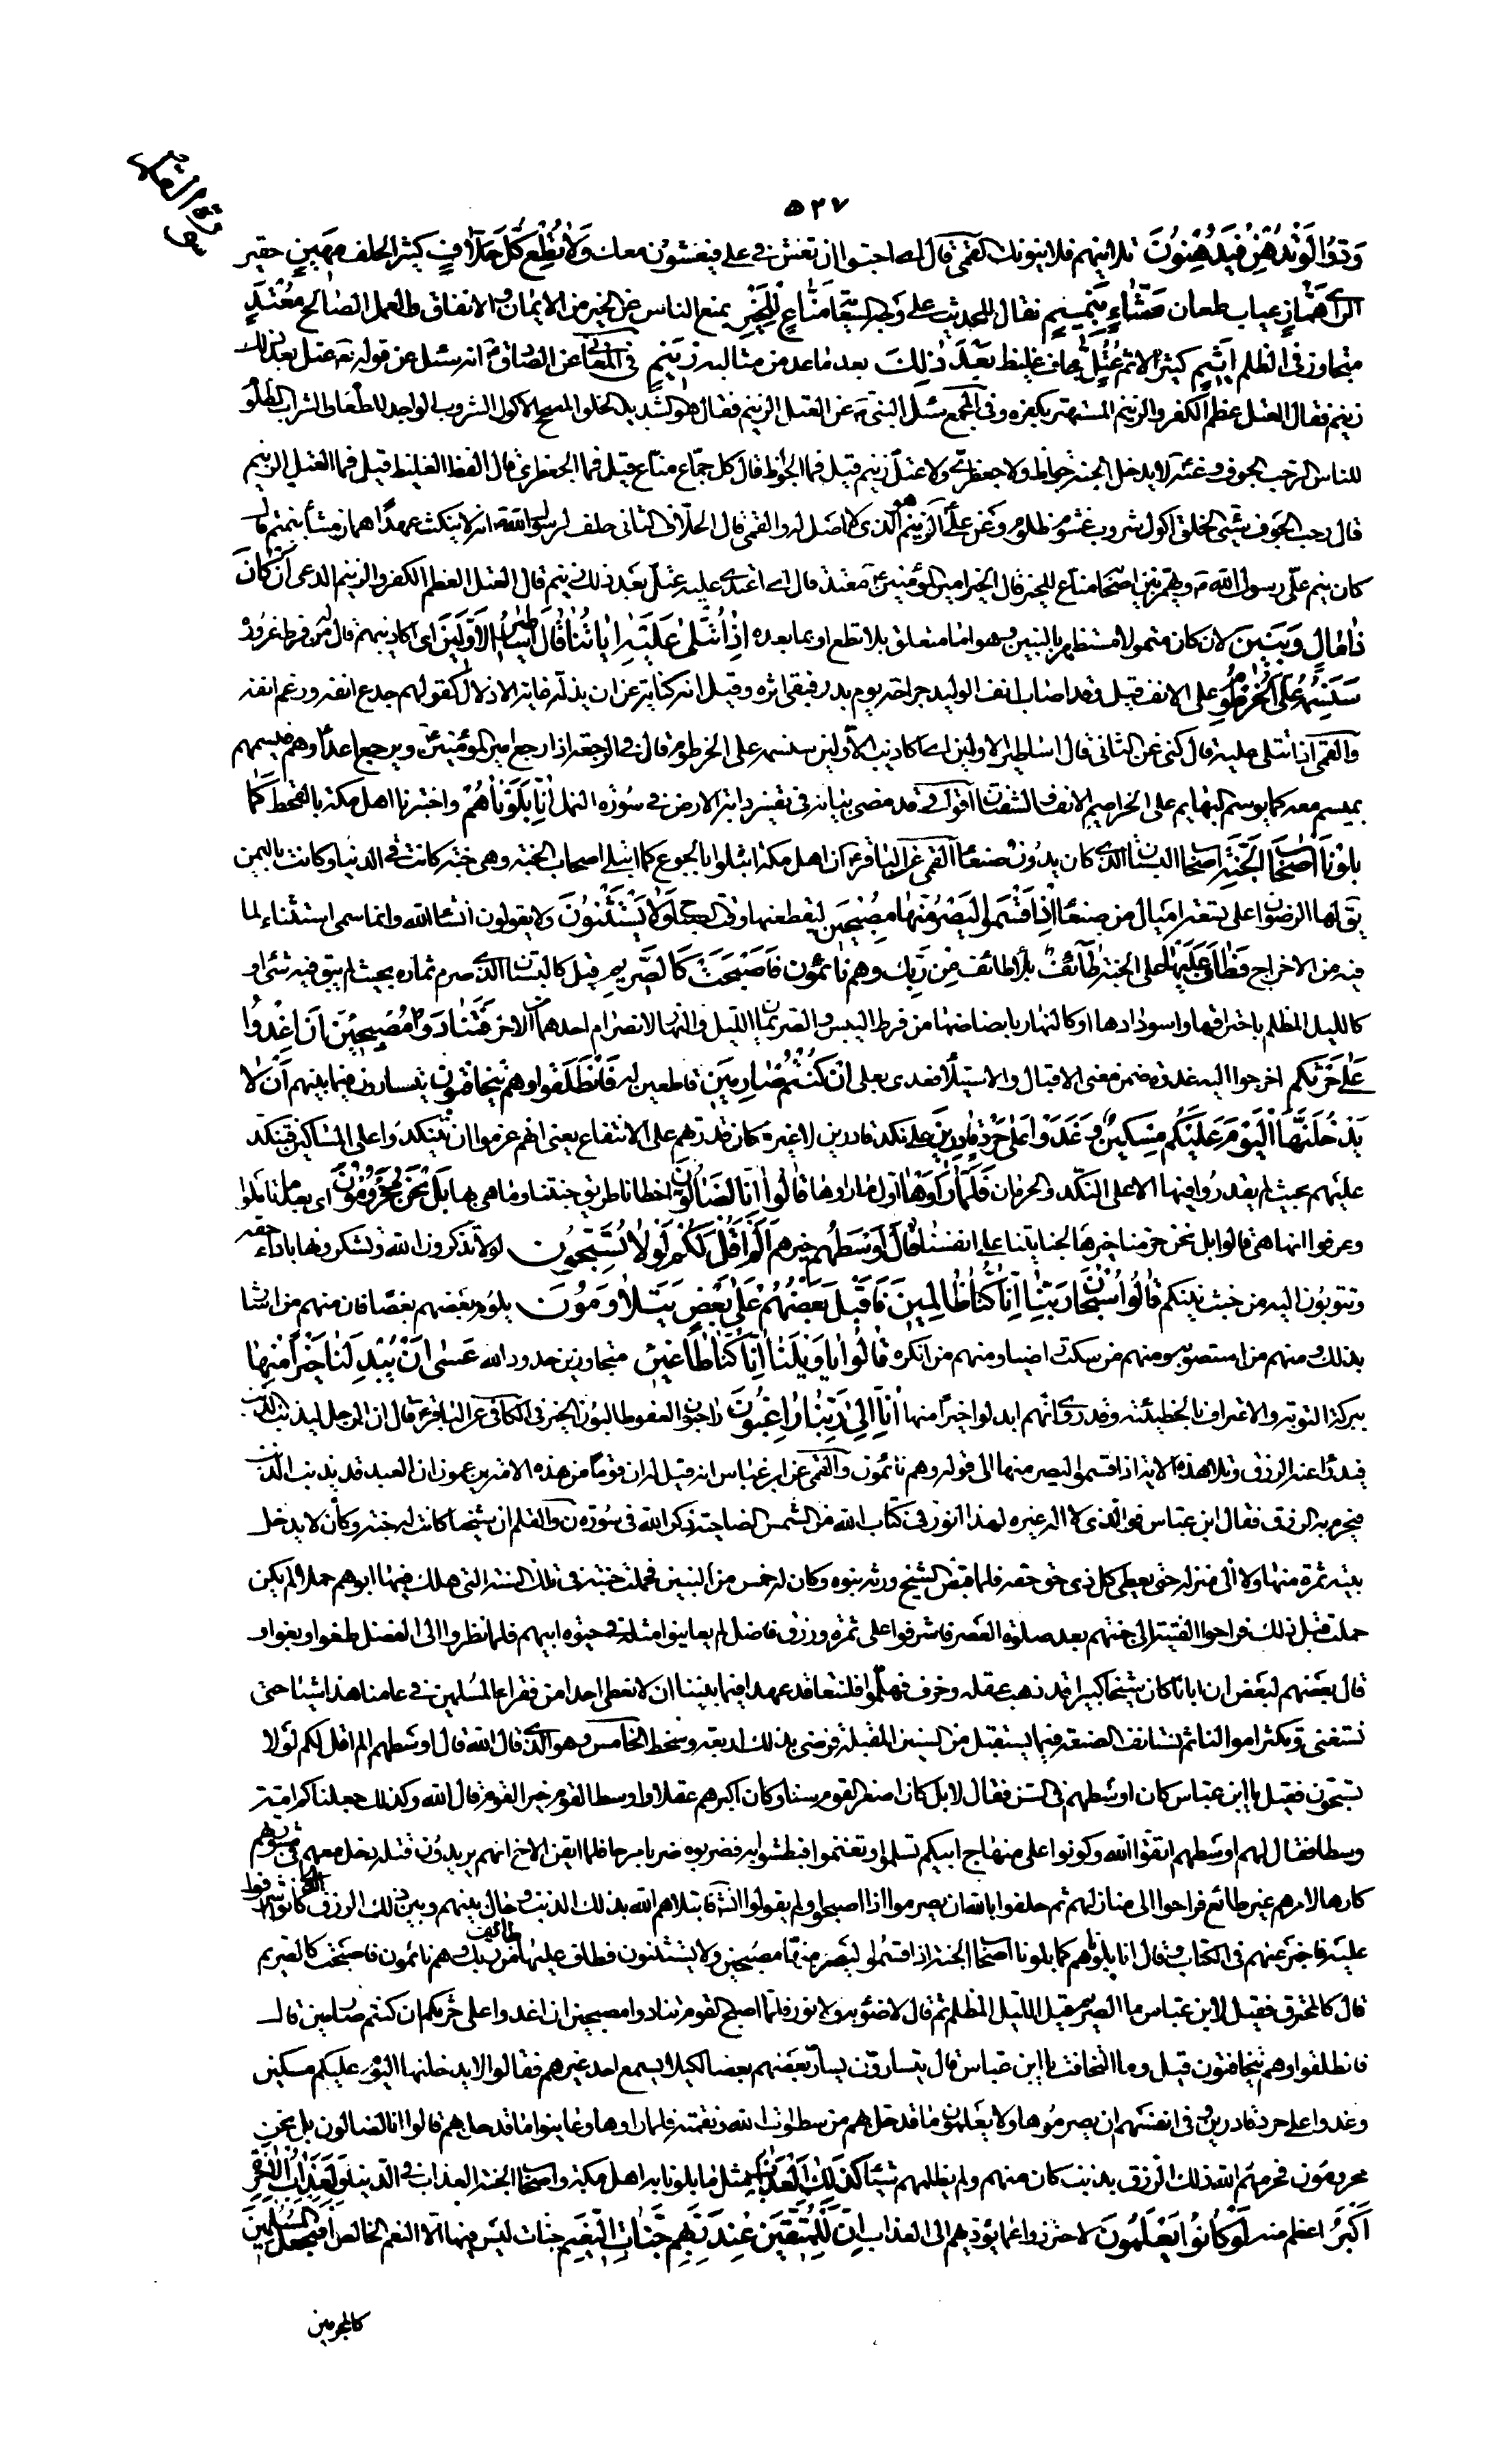 سورة القلم
٥٣٧
وَدُّوا لَوْ تُدْهِنُ فَيُدْهِنُونَ تلاينهم فلاينونك القمي قال اي احبوا ان تغش في علي فيغشون معك وَلَا تُطِعْ كُلَّ حَلَّافٍ كثير الحلف مَهِينٍ حقير
الراي هَمَّازٍ عياب طعان مَشَّاءٍ بِنَمِيمٍ نقال للحديث على وجه السعاية مَنَّاعٍ لِلْخَيْرِ يمنع الناس عن الخير من الايمان والانفاق والعمل الصالح مُعْتَدٍ
متجاوز في الظلم أَثِيمٍ كثير الاثم عُتُلٍّ جاف غليظ بَعْدَ ذَلِكَ بعد ما عد من مثالبه زَنِيمٍ في المعاني عن الصادق انه سئل عن قوله تعه عتل بعد ذلك
زنيم فقال العتل عظيم الكفر والزنيم المستهتر بكفره وفي المجمع سئل النبي ص عن العتل الزنيم فقال هو الشديد الخلق المصحح الاكول الشروب الواجد للطعام والشراب الظلوم
للناس الرحب الجوف وعنه لا يدخل الجنة جواظ ولا جعظري ولا عتل زنيم قيل فما الجواظ قال كل جماع مناع قيل فما الجعظري قال الفظ الغليظ قيل فما العتل الزنيم
قال رحب الجوف سيئ الخلق اكول شروب غشوم ظلوم وعن علي الزنيم هو الذي لا اصل له والقمي قال الحلاف الثاني حلف لرسول الله ص انه لا ينكث عهدا هماز مشاء بنميم قال
كان ينم على رسول الله ص ويهمز بين اصحابه مناع للخير قال الخير امير المؤمنين ع معتد قال اي اعتدى عليه عتل بعد ذلك زنيم قال العتل العظيم الكفر والزنيم الدعي أَنْ كَانَ
ذَا مَالٍ وَبَنِينَ لان كان متمولا مستظهرا بالبنين وهو اما متعلق بلا تطع او بما بعده إِذَا تُتْلَى عَلَيْهِ آيَاتُنَا قَالَ أَسَاطِيرُ الْأَوَّلِينَ اي اكاذيبهم قاله من فرط غروره
سَنَسِمُهُ عَلَى الْخُرْطُومِ على الانف قيل وقد اصاب انف الوليد جراحة يوم بدر فبقي اثره وقيل انه كناية عن ان يذله غاية الاذلال كقولهم جدع انفه ورغم انفه
والقمي اذا تتلى عليه قال كنى عن الثاني قال اساطير الاولين اي اكاذيب الاولين سنسمه على الخرطوم قال في الرجعة اذا رجع امير المؤمنين ع ويرجع اعداؤه فيسمهم
بميسم معه كما يوسم البهايم على الخراطيم الانف والشفتان اقول وقد مضى بيانه في تفسير دابة الارض في سورة النمل إِنَّا بَلَوْنَاهُمْ واختبرنا اهل مكة بالقحط كَمَا
بَلَوْنَا أَصْحَابَ الْجَنَّةِ اصحاب البستان الذي كان بدون صنعا القمي عن الباقر ع ان اهل مكة ابتلوا بالجوع كما ابتلي اصحاب الجنة وهي جنة كانت في الدنيا وكانت باليمن
يق لها الرضوان على تسعة اميال من صنعا إِذْ أَقْسَمُوا لَيَصْرِمُنَّهَا مُصْبِحِينَ ليقطعنها وقت الصباح وَلَا يَسْتَثْنُونَ ولا يقولون انشاء الله وانما سمى استثناء لما
فيه من الاخراج فَطَافَ عَلَيْهَا على الجنة طَائِفٌ بلاء طائف مِنْ رَبِّكَ وَهُمْ نَائِمُونَ فَأَصْبَحَتْ كَالصَّرِيمِ قيل كالبستان الذي صرم ثماره بحيث لم يبق فيه شئ او
كالليل المظلم باحتراقها واسودادها او كالنهار بابيضاضها من فرط اليبس والصريمان الليل والنهار لانصرام احدهما من الاخر فَتَنَادَوْا مُصْبِحِينَ أَنِ اغْدُوا
عَلَى حَرْثِكُمْ اخرجوا اليه غدوة ضمن معنى الاقبال والاستيلاء فعدى بعلى إِنْ كُنْتُمْ صَارِمِينَ قاطعين له فَانْطَلَقُوا وَهُمْ يَتَخَافَتُونَ يتسارون فيما بينهم أَنْ لَا
يَدْخُلَنَّهَا الْيَوْمَ عَلَيْكُمْ مِسْكِينٌ وَغَدَوْا عَلَى حَرْدٍ قَادِرِينَ على نكد قادرين لا غير مكان قدرتهم على الانتفاع يعني انهم عزموا ان يتنكدوا على المساكين فتنكد
عليهم بحيث لم يقدروا فيها الا على النكد والحرمان فَلَمَّا رَأَوْهَا اول ما راوها قَالُوا إِنَّا لَضَالُّونَ اخطانا طريق جنتنا وما هي بها بَلْ نَحْنُ مَحْرُومُونَ اي بعد ما تاملوا
وعرفوا انها هي قالوا بل نحن حرمنا خيرها لجنايتنا على انفسنا قَالَ أَوْسَطُهُمْ خيرهم أَلَمْ أَقُلْ لَكُمْ لَوْلَا تُسَبِّحُونَ لولا تذكرون الله وتشكرونها باداء حقه
وتتوبون اليه من خبث نيتكم قَالُوا سُبْحَانَ رَبِّنَا إِنَّا كُنَّا ظَالِمِينَ فَأَقْبَلَ بَعْضُهُمْ عَلَى بَعْضٍ يَتَلَاوَمُونَ يلوم بعضهم بعضا فان منهم من اشار
بذلك ومنهم من استصوبه ومنهم من سكت راضيا ومنهم من انكره قَالُوا يَا وَيْلَنَا إِنَّا كُنَّا طَاغِينَ متجاوزين حدود الله عَسَى أَنْ يُبْدِلَنَا خَيْرًا مِنْهَا
ببركة التوبة والاعتراف بالخطيئة وقد روي انهم ابدلوا خيرا منها إِنَّا إِلَى رَبِّنَا رَاغِبُونَ راجون العفو طالبون الخير في الكافي عن الباقر ع قال ان الرجل ليذنب الذنب
فيدرا عنه الرزق وتلا هذه الاية اذ اقسموا ليصرمنها الى قوله وهم نائمون والقمي عن ابن عباس انه قيل له ان قوما من هذه الامة يزعمون ان العبد قد يذنب الذنب
فيحرم به الرزق فقال ابن عباس فو الذي لا اله غيره لهذا انور في كتاب الله من الشمس الضاحية ذكر الله في سورة ن والقلم ان شيخا كانت له جنة وكان لا يدخل
بيته ثمرة منها ولا الى منزله حتى يعطي كل ذي حق حقه فلما قبض الشيخ ورثه بنوه وكان له خمس من البنين فحملت جنته في تلك السنة التي هلك فيها ابوهم حملا لم يكن
حملت قبل ذلك فراحوا الفتية الى جنتهم بعد صلوة العصر فاشرفوا على ثمرة ورزق فاضل لم يعاينوا مثله في حيوة ابيهم فلما نظروا الى الفضل طغوا وبغوا و
قال بعضهم لبعض ان ابانا كان شيخا كبيرا قد ذهب عقله وخرف فهلموا فلنتعاقد عهدا فيما بيننا ان لا نعطي احدا من فقراء المسلمين في عامنا هذا شيئا حتى
نستغني وتكثر اموالنا ثم نستانف الصنعة فيما يستقبل من السنين المقبلة فرضي بذلك اربعة وسخط الخامس وهو الذي قال الله قال اوسطهم الم اقل لكم لولا
تسبحون فقيل يا ابن عباس كان اوسطهم في السن فقال لا بل كان اصغر القوم سنا وكان اكبرهم عقلا واوسط القوم خير القوم قال الله وكذلك جعلناكم امة
وسطا فقال لهم اوسطهم اتقوا الله وكونوا على منهاج ابيكم تسلموا وتغنموا فبطشوا به فضربوه ضربا مبرحا فلما ايقن الاخ انهم يريدون قتله دخل معهم في مشورتهم
كارها لامرهم غير طائع فراحوا الى منازلهم ثم حلفوا بالله ان يصرموا اذا اصبحوا ولم يقولوا انشاء الله فابتلاهم الله بذلك الذنب وحال بينهم وبين ذلك الرزق الذي كانوا اشرفوا
عليه فاخبر عنهم في الكتاب وقال انا بلوناهم كما بلونا اصحاب الجنة اذ اقسموا ليصرمنها مصبحين ولا يستثنون فطاف عليها طائف من ربك وهم نائمون فاصبحت كالصريم
قال كالمحترق فقيل لابن عباس ما الصريم قيل الليل المظلم ثم قال لا ضوء به ولا نور فلما اصبح القوم تنادوا مصبحين ان اغدوا على حرثكم ان كنتم صارمين قال
فانطلقوا وهم يتخافتون قيل وما التخافت يا ابن عباس قال يتسارون يسار بعضهم بعضا لكيلا يسمع احد غيرهم فقالوا لا يدخلنها اليوم عليكم مسكين
وغدوا على حرد قادرين وفي انفسهم ان يصرموها ولا يعلمون ما قد حل بهم من سطوات الله ونقمته فلما راوها وعاينوا ما قد حل بهم قالوا انا لضالون بل نحن
محرومون فحرمهم الله ذلك الرزق بذنب كان منهم ولم يظلمهم شيئا كَذَلِكَ الْعَذَابُ مثل ما بلونا به اهل مكة واصحاب الجنة العذاب في الدنيا وَلَعَذَابُ الْآخِرَةِ
أَكْبَرُ اعظم منه لَوْ كَانُوا يَعْلَمُونَ لاحترزوا عما يؤديهم الى العذاب إِنَّ لِلْمُتَّقِينَ عِنْدَ رَبِّهِمْ جَنَّاتِ النَّعِيمِ جنات ليس فيها الا التنعم الخالص أَفَنَجْعَلُ الْمُسْلِمِينَ
كالمجرمين